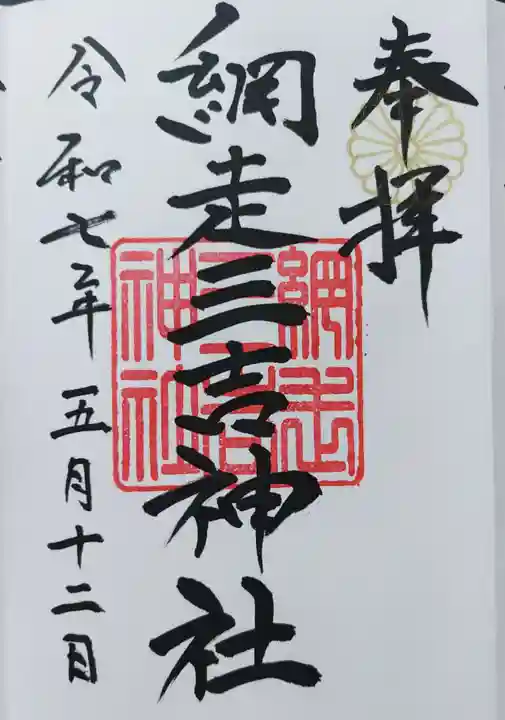 奉拝
網走三吉神社
網走三吉神社
令和七年五月十二日